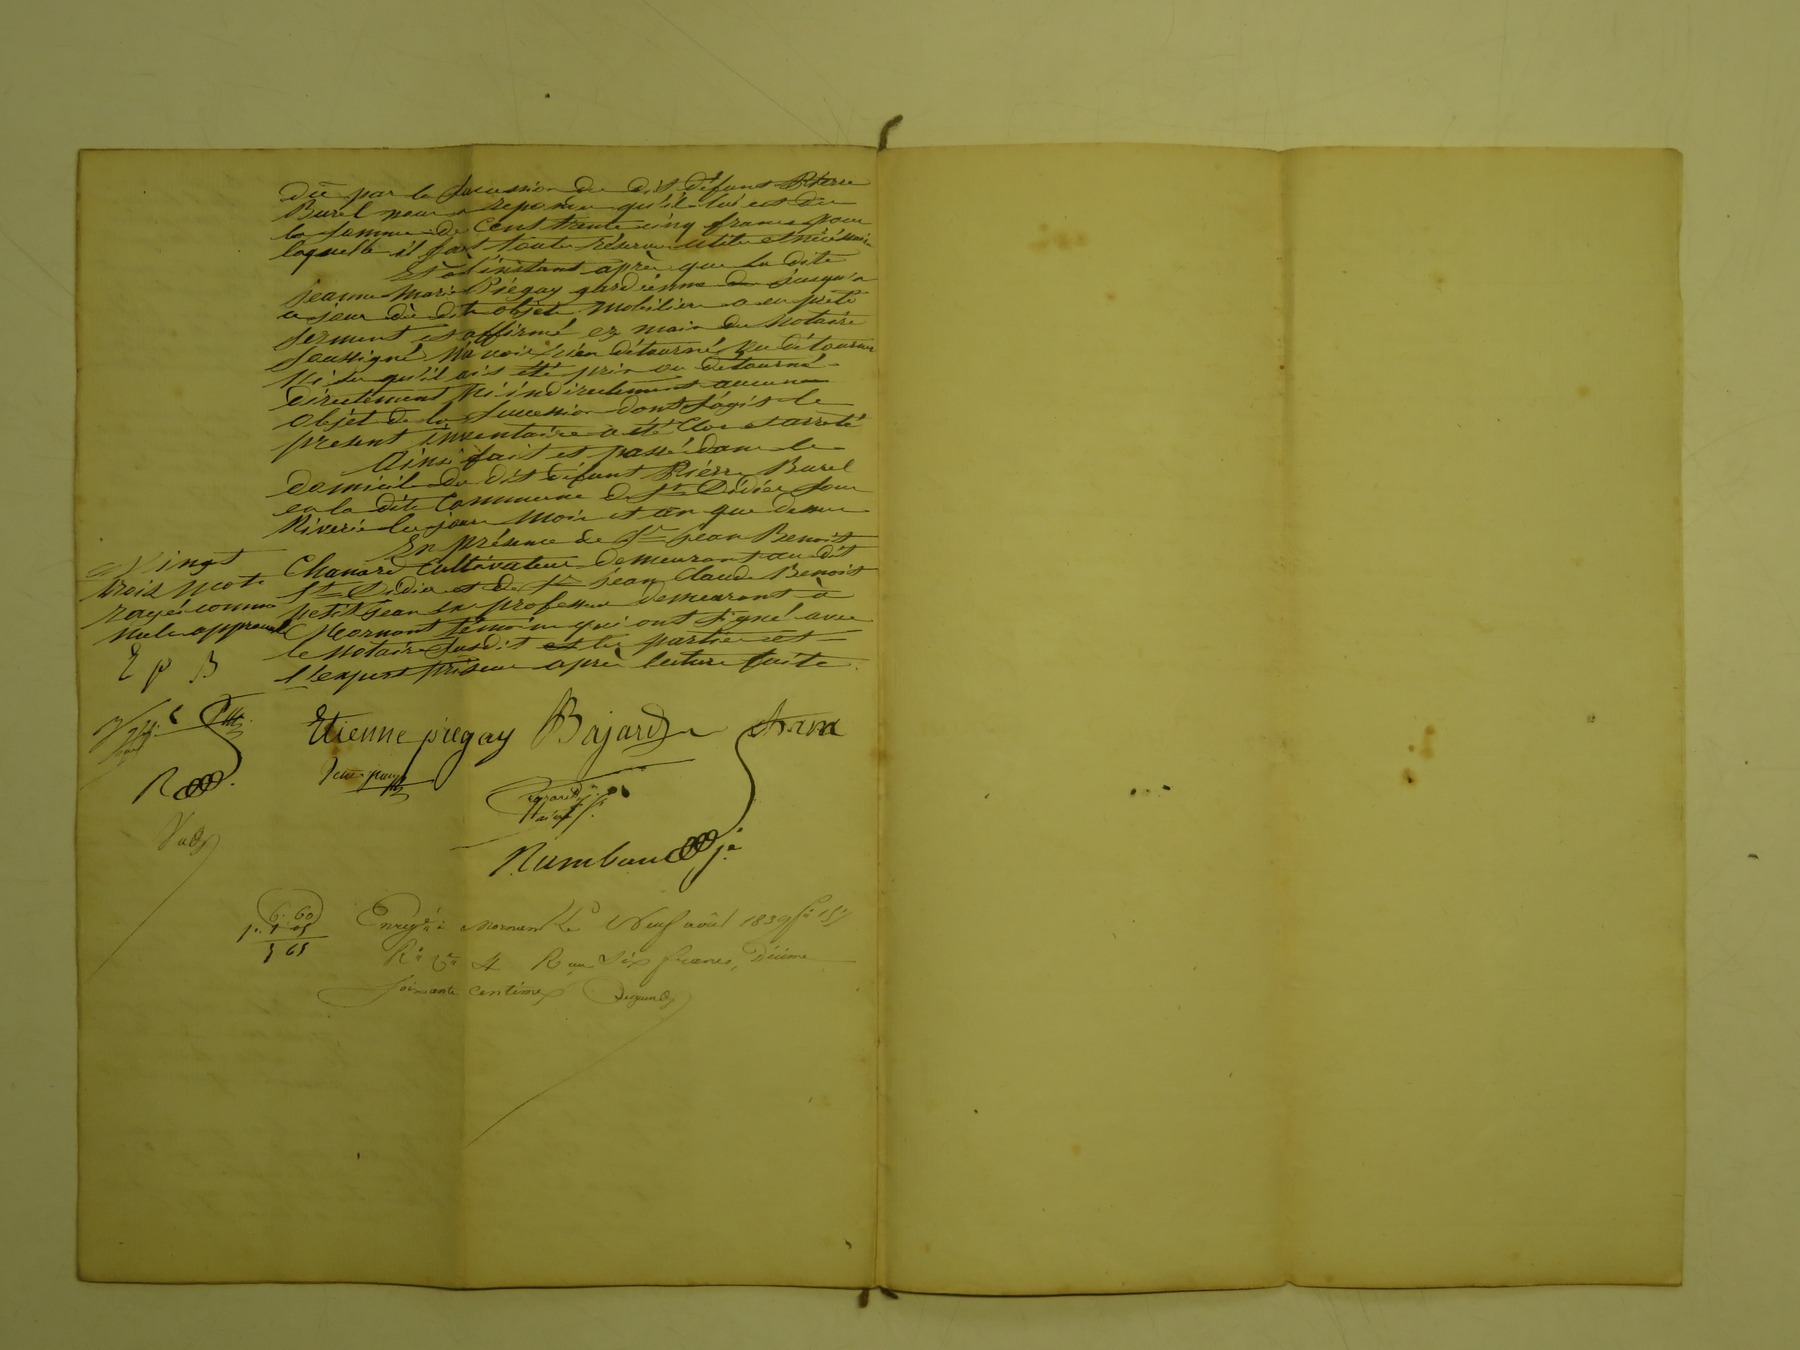 Dû par la succession du dit défunt Pierre
Burel pour a reponu qu'il lui est du
la somme de Cent trente cinq francs pour
laquelle il fait toute réserve utile et nécéssaire
Et à l'instant après que la dite
jeanne Marie Piégay gardienne de jusqu'a
ce jour du dit objet mobilier a eu prêté
serment et affirmé ez main du Notaire
soussigné N'avoir rien détourné Vu détourner
Ni su qu'il ait été pris ou détourné
directement Ni indirectement aucune
objet de la succession dont s'agit le
présent inventaire a été Clos et arrêté
Ainsi fait et passé dans le
domicile du dit défunt Pièrre Burel
en la dite Commune de St Didier sous
Riverie les jour Mois et an que dessus
En présence de Sr jean Benoit
Chanard Cultivateur demeurant au dit
St Didier et de Sr jean Claude Benoit
petitjean ex professeur demeurant à
Mornant témoins qui ont signé avec
le Notaire susdit et les parties et
l'expert priseur après lecture faite.
Vingt
trois mots
rayés comme
nuls approuvés
E p B
Etienne piegay Bajard
petit-jean
Rambaud je
6. 60
Enregé à Mornant le Neuf août 1839 fo 151
Ro Vo 4 R un six francs, Décime
soixante centimes